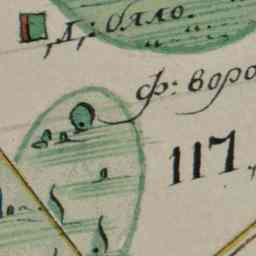 Д: бяло.
ф: воро
117